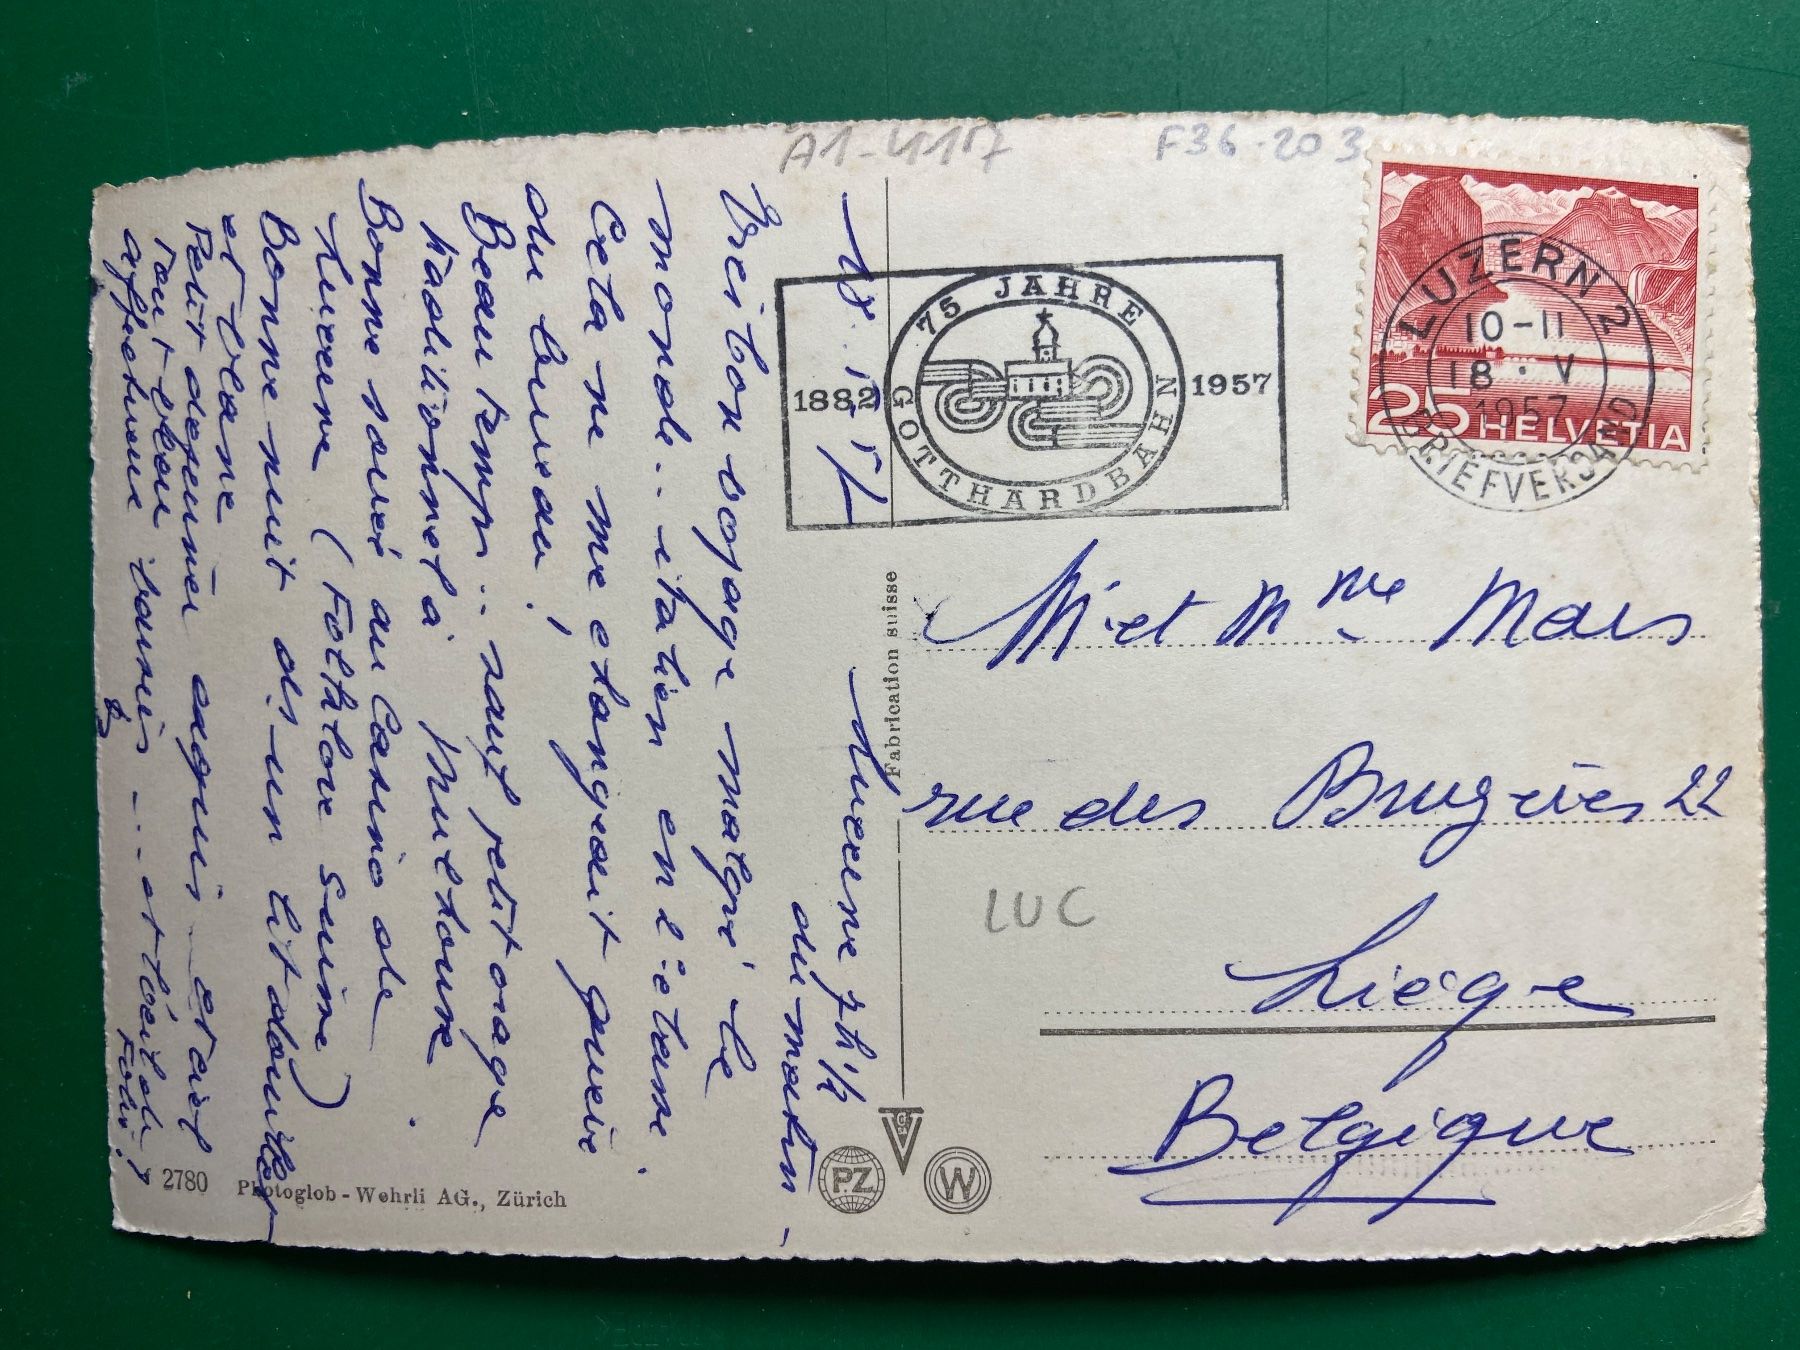 A1-4117
F36-203
18.V.57
Lucerne 7h 1/2
du matin -
Très bon voyage malgré le
monde.. italien en l'étane.
Cela ne me changeait guère
du bureau!
Beau temps.. sauf petit orage
traditionnel à Mulhouse.
Bonne soirée au Casino de
Lucerne (Folklore Suisse)
Bonne nuit ds un lit douillet
et blanc
Petit déjeuner exquis.. et ciel
tout bleu
affectueux baisers.. et bientôt
75 JAHRE
GOTTHARDBAHN
1882
1957
LUZERN 2
10-11
18.V
1957
BRIEFVERSAND
25 HELVETIA
Fabrication suisse
Mr et Mme Mars
rue des Bruyères 22
LUC
Liège
Belgique
PZ
W
2780 Photoglob-Wehrli AG., Zürich